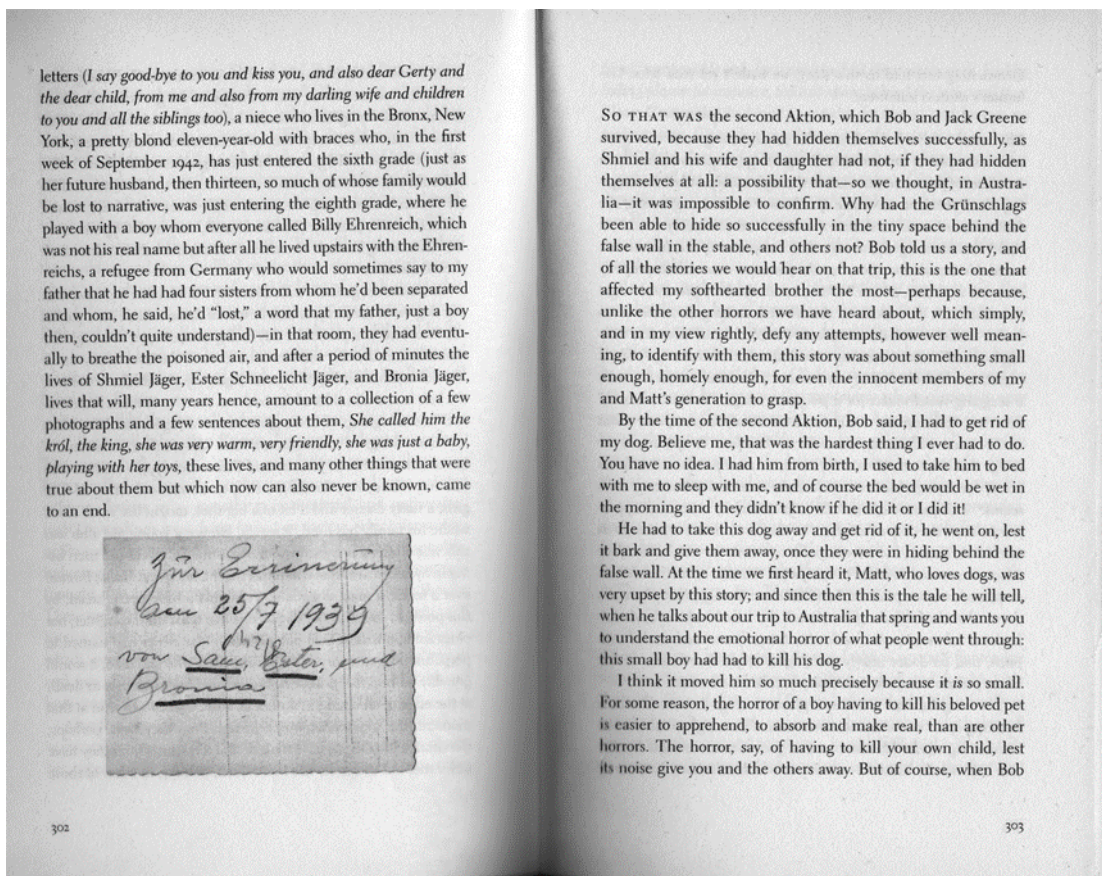 letters (I say good-bye to you and kiss you, and also dear Gerty and
the dear child, from me and also from my darling wife and children
to you and all the siblings too), a niece who lives in the Bronx, New
York, a pretty blond eleven-year-old with braces who, in the first
week of September 1942, has just entered the sixth grade (just as
her future husband, then thirteen, so much of whose family would
be lost to narrative, was just entering the eighth grade, where he
played with a boy whom everyone called Billy Ehrenreich, which
was not his real name but after all he lived upstairs with the Ehren-
reichs, a refugee from Germany who would sometimes say to my
father that he had had four sisters from whom he'd been separated
and whom, he said, he'd “lost,” a word that my father, just a boy
then, couldn't quite understand)—in that room, they had eventu-
ally to breathe the poisoned air, and after a period of minutes the
lives of Shmiel Jäger, Ester Schneelicht Jäger, and Bronia Jäger,
lives that will, many years hence, amount to a collection of a few
photographs and a few sentences about them, She called him the
król, the king, she was very warm, very friendly, she was just a baby,
playing with her toys, these lives, and many other things that were
true about them but which now can also never be known, came
to an end.
Zur Errinerung
am 25/7 1939
von Sam, Ester, und
Bronia
302
SO THAT WAS the second Aktion, which Bob and Jack Greene
survived, because they had hidden themselves successfully, as
Shmiel and his wife and daughter had not, if they had hidden
themselves at all: a possibility that—so we thought, in Austra-
lia—it was impossible to confirm. Why had the Grünschlags
been able to hide so successfully in the tiny space behind the
false wall in the stable, and others not? Bob told us a story, and
of all the stories we would hear on that trip, this is the one that
affected my softhearted brother the most—perhaps because,
unlike the other horrors we have heard about, which simply,
and in my view rightly, defy any attempts, however well mean-
ing, to identify with them, this story was about something small
enough, homely enough, for even the innocent members of my
and Matt's generation to grasp.
By the time of the second Aktion, Bob said, I had to get rid of
my dog. Believe me, that was the hardest thing I ever had to do.
You have no idea. I had him from birth, I used to take him to bed
with me to sleep with me, and of course the bed would be wet in
the morning and they didn't know if he did it or I did it!
He had to take this dog away and get rid of it, he went on, lest
it bark and give them away, once they were in hiding behind the
false wall. At the time we first heard it, Matt, who loves dogs, was
very upset by this story; and since then this is the tale he will tell,
when he talks about our trip to Australia that spring and wants you
to understand the emotional horror of what people went through:
this small boy had had to kill his dog.
I think it moved him so much precisely because it is so small.
For some reason, the horror of a boy having to kill his beloved pet
is easier to apprehend, to absorb and make real, than are other
horrors. The horror, say, of having to kill your own child, lest
its noise give you and the others away. But of course, when Bob
303